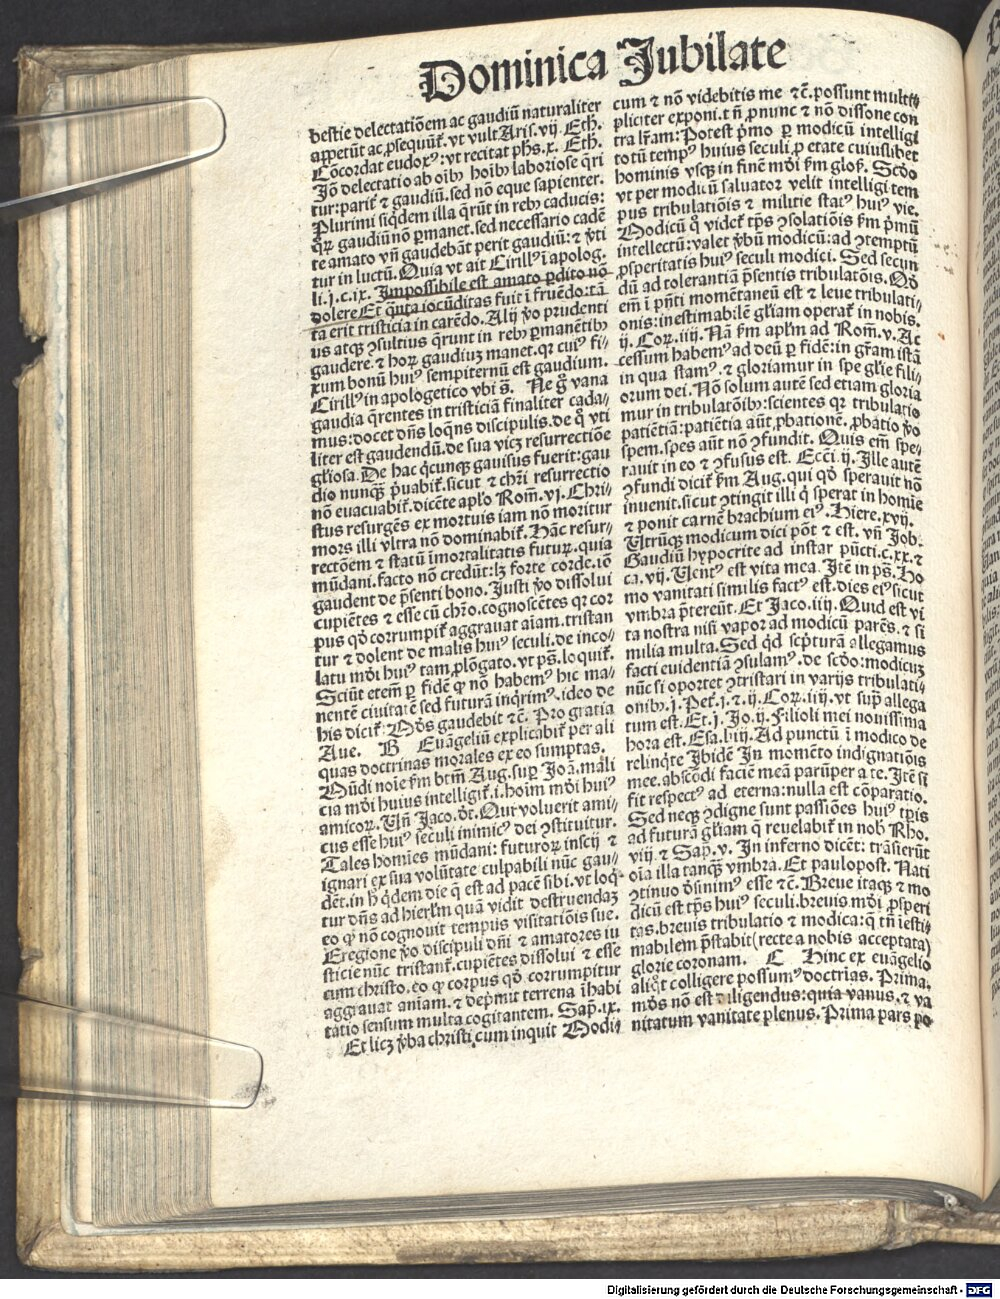 Dominica Jubilate
bestie delectatiōem ac gaudiū naturaliter
appetūt ac ꝓsequūt᷑. vt vult Aris. vij. Eth.
Cōcordat eudoxꝰ: vt recitat ph̄s. x. Eth.
Jō delectatio ab oībꝫ hoībꝫ laboriose q̄ri
tur: parit᷑ ⁊ gaudiū. sed nō eque sapienter.
Plurimi siq̇dem illa q̄rūt in rebꝫ caducis:
qꝛ gaudiū nō ꝑmanet. sed necessario cadē
te amato vn̄ gaudebāt perit gaudiū: ⁊ v̓ti
tur in luctū. Quia vt ait Cirillꝰ ī apolog.
li. j. c. ix. Impossibile est amato ꝑdito nō
dolere Et q̄nta iocūditas fuit ī fruēdo: tā
ta erit tristicia in carēdo. Alij v̓o prudenti
us atqꝫ ꝯsultius q̄runt in rebꝫ ꝑmanētibꝫ
gaudere. ⁊ hoꝝ gaudiuꝫ manet. qꝛ cuiꝰ fi⸗
xum bonū huiꝰ sempiternū est gaudium.
Cirillꝰ in apologetico vbi s̄. Ne g̊ vana
gaudia q̄rentes in tristiciā finaliter cada⸗
mus: docet dn̄s loq̄ns discipulis. de q̊ vti
liter est gaudendū. de sua vicꝫ resurrectiōe
gl̓iosa. De hac q̇cunqꝫ gauisus fuerit: gau
dio nunqꝫ p̓uabit᷑. sicut ⁊ chr̄i resurrectio
nō euacuabit᷑. dicēte apl̓o Rom̄. vj. Chri⸗
stus resurgēs ex mortuis iam nō moritur
mors illi vltra nō dominabit᷑. Hāc resur⸗
rectōem ⁊ statū īmortalitatis futuꝝ. quia
mūdani. facto nō credūt: lꝫ forte corde. iō
gaudent de p̄senti bono. Justi v̓o dissolui
cupiētes ⁊ esse cū chr̄o. cognoscētes qꝛ cor
pus qd̓ corrumpit᷑ aggrauat aīam. tristan
tur ⁊ dolent de malis huiꝰ seculi. de inco⸗
latu mōi huiꝰ tam ꝓlōgato. vt ps̄. loquit᷑.
Sciūt etem̄ ꝑ fidē ꝙ nō habemꝰ hic ma⸗
nentē ciuitatē sed futurā inq̇rimꝰ. ideo de
his dicit᷑: Mōs gaudebit ⁊c̄. Pro gratia
Aue. B Euāgeliū explicabit᷑ per ali
quas doctrinas morales ex eo sumptas.
Mūdi noīe f̄m btm̄ Aug. suꝑ Joā. mali
cia mōi huius intelligit᷑. i. hoīm mōi huiꝰ
amicoꝝ. Vn̄ Jaco. dt̄. Qui voluerit ami⸗
cus esse huiꝰ seculi inimicꝰ dei ꝯstituitur.
Tales homīes mūdani: futuroꝝ inscij ⁊
ignari ex sua volūtate culpabili nūc gau⸗
dēt. in h̊ q̇dem die q̄ est ad pacē sibi. vt loq̇⸗
tur dn̄s ad hierl̓m quā vidit destruendaꝫ
eo ꝙ nō cognouit tempus visitatiōis sue.
Eregione v̓o discipuli dn̄i ⁊ amatores iu
sticie nūc tristant᷑. cupiētes dissolui ⁊ esse
cum christo. eo ꝙ corpus qd̓ corrumpitur
aggrauat aniam. ⁊ dep̓mit terrena īhabi
tatio sensum multa cogitantem. Sap̄. ix.
Et licꝫ v̓ba christi. cum inquit Modi⸗
cum ⁊ nō videbitis me ⁊c̄. possunt multi⸗
pliciter exponi. t n̄ ꝓ nunc ⁊ nō dissone con
tra lr̄am: Potest p̓mo ꝑ modicū intelligi
totū tempꝰ huius seculi, ꝓ etate cuiuslibet
hominis vsqꝫ in finē mōi f̄m gloſ. Scd̓o
vt per modicū saluator velit intelligi tem
pus tribulatiōis ⁊ militie statꝰ huiꝰ vie.
Modicū q̊ videt᷑ tp̄s ꝯsolatiōis f̄m p̓mū
intellectū: valet v̓bū modicū: ad ꝯtemptū
ꝓsperitatis huiꝰ seculi modici. Sed secun
dū ad tolerantiā p̄sentis tribulatōis. Qd̓
em̄ ī p̄nti momētaneū est ⁊ leue tribulati⸗
onis: inestimabilē gl̓iam operat᷑ in nobis.
ij. Coꝝ. iiij. Nā f̄m apl̓m ad Rom̄. v. Ac
cessum habemꝰ ad deū ꝑ fidē: in gr̄am istā
in qua stamꝰ. ⁊ gloriamur in spe gl̓ie fili⸗
orum dei. Nō solum autē sed etiam gloria
mur in tribulatōibꝫ: scientes qꝛ tribulatio
patiētiā: patiētia aūt ꝓbationē. ꝓbatio v̓o
spem. spes aūt nō ꝯfundit. Quis em̄ spe⸗
rauit in eo ⁊ ꝯfusus est. Ecc̄i. ij. Ille autē
ꝯfundi dicit᷑ f̄m Aug. qui qd̓ sperauit nō
inuenit. sicut ꝯtingit illi q̇ sperat in homīe
⁊ ponit carnē brachium eiꝰ. Hiere. xvij.
Vtrūqꝫ modicum dici pōt ⁊ est. vn̄ Job.
Gaudiū hypocrite ad instar pūcti. c. xx. ⁊
ca. vij. Uentꝰ est vita mea. Itē in ps̄. Ho
mo vanitati similis factꝰ est. dies eiꝰ sicut
vmbra p̄tereūt. Et Jaco. iiij. Quid est vi
ta nostra nisi vapor ad modicū parēs. ⁊ si
milia multa. Sed qd̓ scp̄turā allegamus
facti euidentiā ꝯsulamꝰ. de scd̓o: modicuꝫ
nūc si oportet ꝯtristari in varijs tribulati⸗
onibꝫ. j. Pet᷑. j. ⁊. ij. Coꝝ. iiij. vt sup̄ allega
tum est. Et. j. Jo. ij. Filioli mei nouissima
hora est. Esa. liiij. Ad punctū ī modico de
relinq̄te Ibidē In momēto indignatiōis
mee. abscōdi faciē meā parūper a te. Itē si
fit respectꝰ ad eterna: nulla est cōparatio.
Sed neqꝫ ꝯdigne sunt passiōes huiꝰ tp̄is
ad futurā gl̓iam q̄ reuelabit᷑ in nob̓ Rho.
viij. ⁊ Sap̄. v. In inferno dicēt: trāsierūt
oīa illa tanqꝫ vmbra. Et paulopost. Nati
ꝯtinuo d̓sinimꝰ esse ⁊c̄. Breue itaqꝫ ⁊ mo
dicū est tp̄s huiꝰ seculi. breuis mōi ꝓsperi
tas. breuis tribulatio ⁊ modica: q̄ tn̄ iesti⸗
mabilem p̄stabit (recte a nobis acceptata)
glorie coronam. C Hinc ex euāgelio
aliq̊t colligere possumꝰ doctrīas. Prima.
mōs nō est diligendus: quia vanus. ⁊ va
nitatum vanitate plenus. Prima pars pꝫ
Digitalisierung gefördert durch die Deutsche Forschungsgemeinschaft - DFG